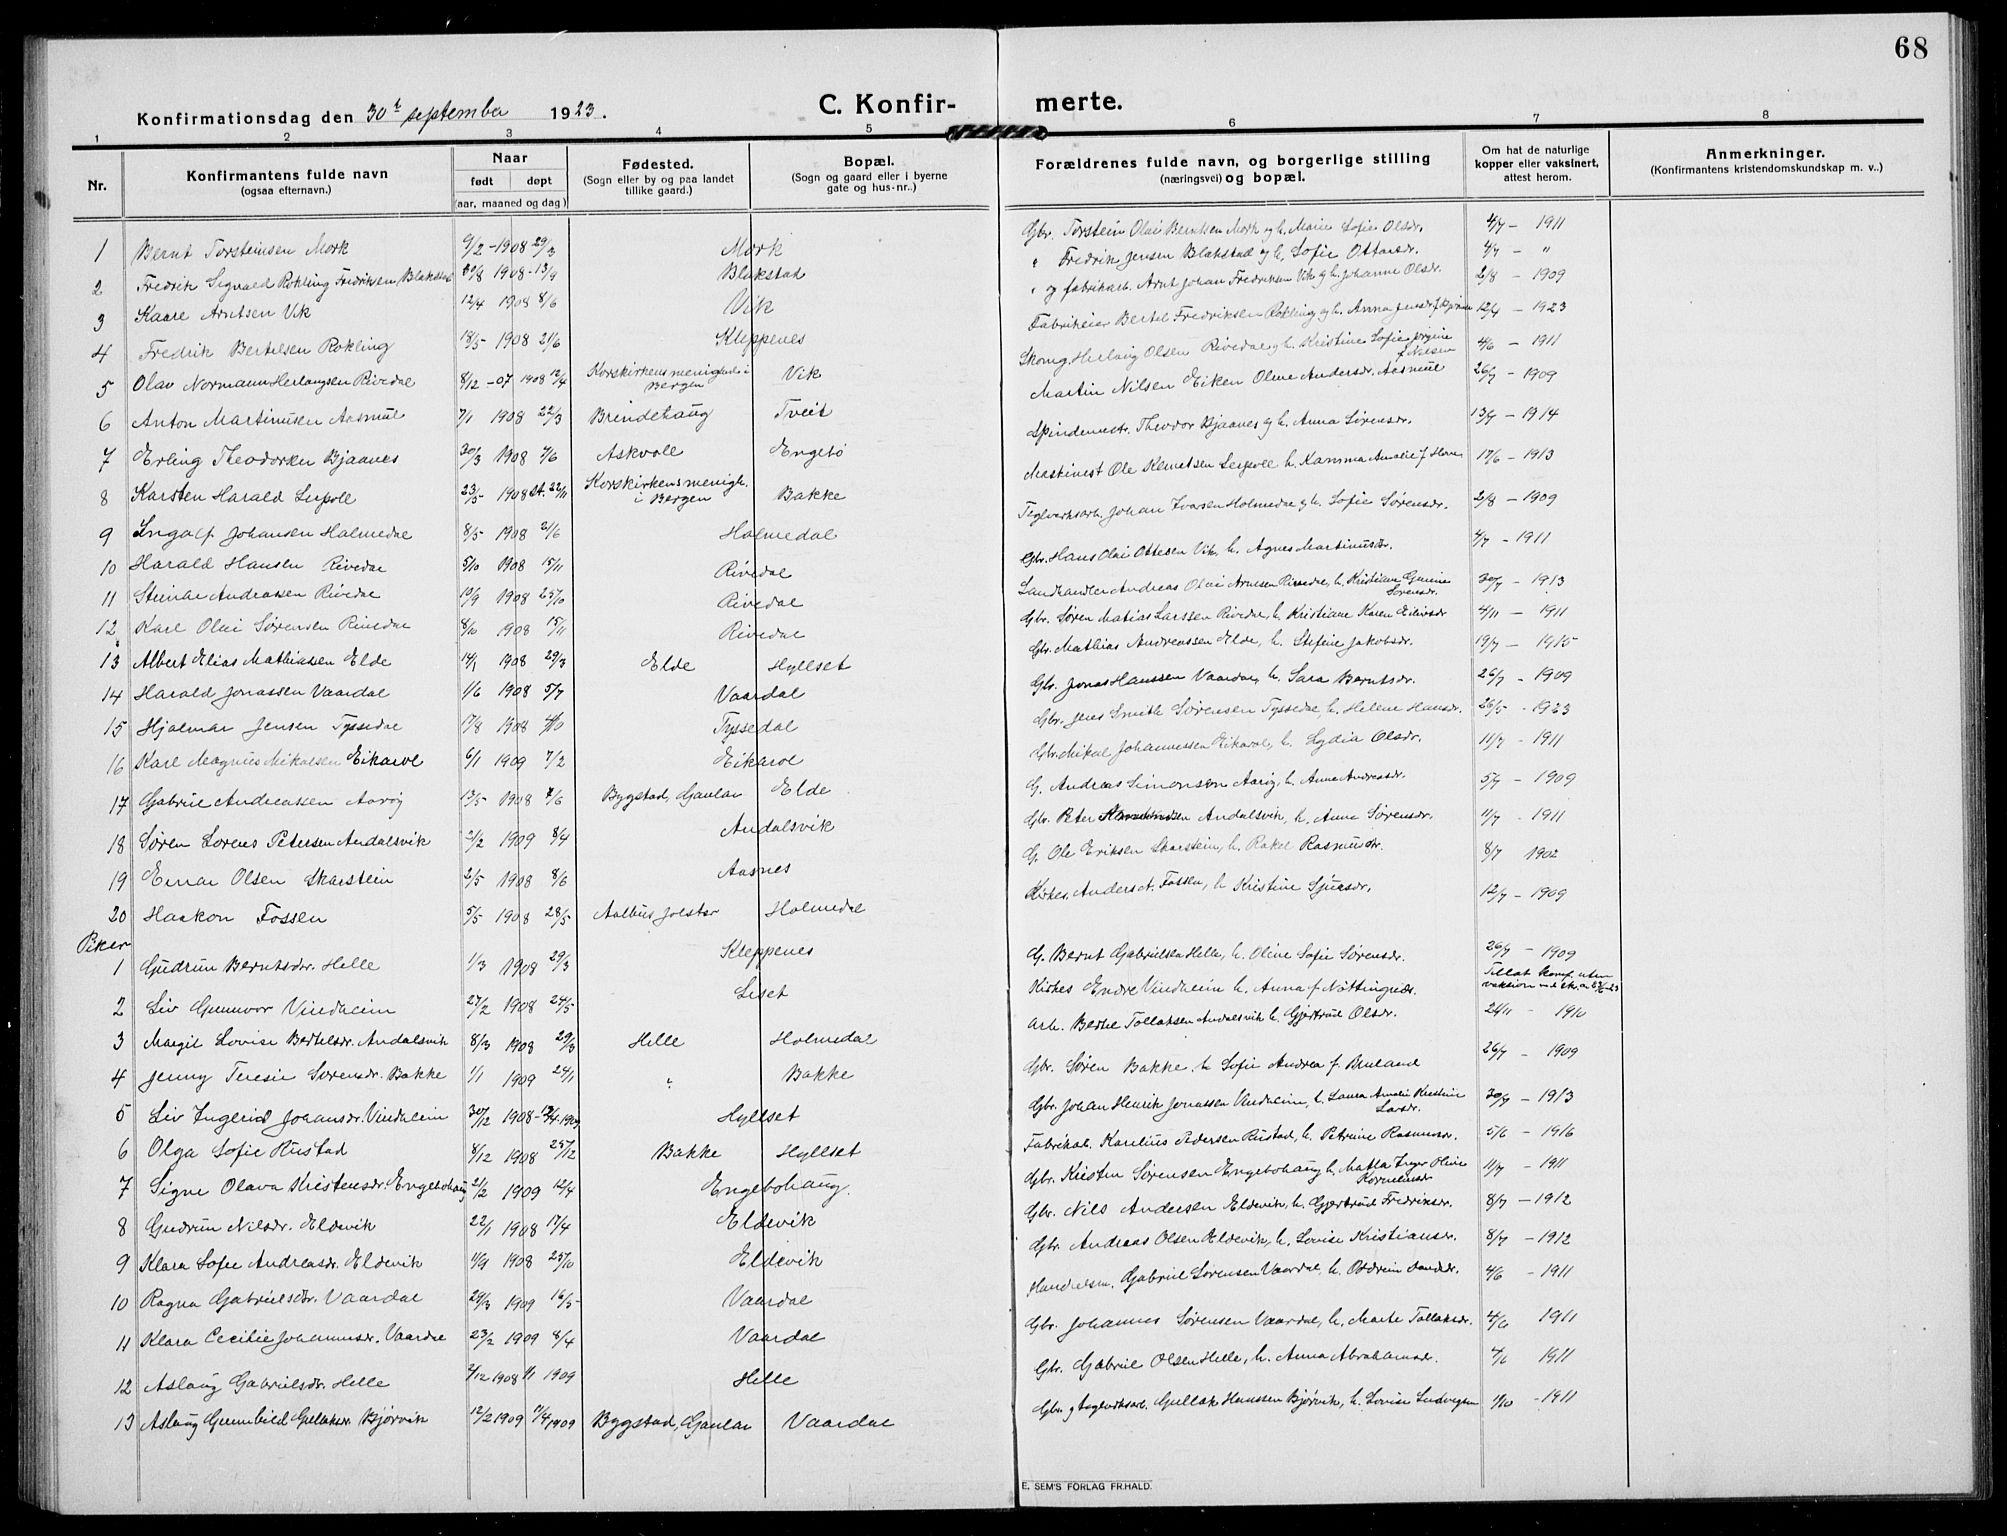 68
Konfirmationsdag den 30t september 1923.
C. Konfir-merte.
1 2 3 4 5 6 7 8
Nr.
Konfirmantens fulde navn
(ogsaa efternavn.)
Naar
født døpt
(aar, maaned og dag)
Fødested.
(Sogn eller by og paa landet
tillike gaard.)
Bopæl.
(Sogn og gaard eller i byerne
gate og hus-nr..)
Forældrenes fulde navn, og borgerlige stilling
(næringsvei) og bopæl.
Om hat de naturlige
kopper eller vaksinert,
attest herom.
Anmerkninger.
(Konfirmantens kristendomskundskap m. v..)
1 Bernt Torsteinsen Mork 9/2 - 1908 29/3 Mork Gbr. Torstein Olai Berntsen Mork og h. Marie Sofie Olsdr. 4/7 - 1911
2 Fredrik Sigvald Rokling Fredriksen Blakstad 30/8 1908 - 13/9 Blakstad " Fredrik Jensen Blakstad og h. Sofie Ottarsdr. 4/7 - "
3 Kaare Arntsen Vik 12/4 1908 8/6 Vik " og fabrikarb. Arnt Johan Fredriksen Vik og h. Johanne Olsdr. 2/8 - 1909
4 Fredrik Bertelsen Rokling 18/5 1908 21/6 Kleppenes Fabrikeier Bertel Fredriksen Rokling og h. Anna 12/4 - 1923
5 Olav Normann Herlaugsen Rivedal 8/12 - 07 1908 12/4 Korskirkens menighed i Bergen Vik Skomg. Herlaug Olsen Rivedal og h. Kristine Sofie Jørgine f. Nilsen 4/6 - 1911
6 Anton Martinusen Aasmul 7/1 1908 22/3 Brindehaug Tveit Martin Nilsen Eiken Oline Andersdr. Aasmul 26/7 - 1909
7 Erling Theodorsen Bjaanes 30/3 1908 7/6 Askvoll Engebø Spindemestr. Theodor Bjaanes og h. Anna Sørensdr. 13/7 - 1914
8 Karsten Harald Leqvoll 23/5 1908 st. 22/11 Korskirkens menigh. i Bergen Bakke Maskinest Ole Klemetsen h. Kamma Amalie f. 17/6 - 1913
9 Ingolf Johansen Holmedal 8/5 1908 21/6 Holmedal Teglverksarb. Johan Ivarsen Holmedal og h. Sofie Sørensdr. 2/8 - 1909
10 Harald Hansen Rivedal 5/10 1908 15/11 Rivedal Gbr. Hans Olai Ottesen Vik, h. Agnes Martinusdr. 4/7 - 1911
11 Steinar Andreassen Rivedal 10/9 1908 25/10 Rivedal Landhandler Andreas Olai Arnesen Rivedal, h. Kristiane Gurine Sørensdr. 30/7 - 1913
12 Karl Olai Sørensen Rivedal 8/10 1908 15/11 Rivedal Gbr. Søren Matias Larssen Rivedal, h. Kristiane Karen Eliasdr 4/11 - 1911
13 Albert Elias Mathiassen Elde 14/1 1908 29/3 Elde Hyllset Gbr. Mathias Andreassen Elde, h. Stefine Jakobsdr. 19/7 - 1915
14 Harald Jonassen Vaardal 1/6 1908 5/7 Vaardal Gbr. Jonas Hanssen Vaardal, h. Sara Berntsdr. 26/7 - 1909
15 Hjalmar Jensen Tyssedal 17/8 1908 4/10 Tyssedal Gbr. Jens Smith Sørensen Tyssedal, h. Helene Hansdr. 26/5 - 1923
16 Karl Magnus Mikalsen Eikarol 6/1 1909 7/2 Eikarol Gbr. Mikal Johannessen Eikarol, h. Lydia Olsdr. 11/7 - 1911
17 Gabriel Andreassen Aarøy 13/5 1908 7/6 Bygstad, Gaular Elde G. Andreas Simonsen Aarøy, h. Anna Andreasdr. 5/7 - 1909
18 Søren Lorens Petersen Andalsvik 2/2 1909 8/4 Andalsvik Gbr. Peter Andalsvik, h. Anna Sørensdr. 11/7 - 1911
19 Einar Olsen Skarstein 2/5 1908 8/6 Aasnes G. Ole Eriksen Skarstein, h. Rakel Rasmusdr. 8/7 1902
20 Haakon Fossen 5/5 1908 28/5 Aalhus Jølster Holmedal Kirkes. Anders A. Fossen, h Kristine Sjursdr. 12/7 - 1909
Piker
1 Gudrun Berntsdr. Helle 1/3 1908 29/3 Kleppenes G. Bernt Gabrielsen Helle, h. Oline Sofie Sørensdr. 26/7 - 1909
2 Liv Gunnvor Vindheim 27/2 1908 24/5 Liset Kirkes Endre Vindheim h. Anna f. Nøttingnes. Tillat konf. uten vaksion
3 Margit Lovise Bertelsdr. Andalsvik 8/3 1908 29/3 Helle Holmedal Arb. Bertel Tollaksen Andalsvik h. Gjertrud Olsdr. 24/11 - 1910
4 Jenny Teresie Sørensdr. Bakke 1/1 1909 24/1 " Bakke Gbr. Søren Bakke. h Sofie Andrea f. Bruland 26/7 - 1909
5 Liv Ingerid Johansdr. Vindheim 30/12 1908 - 12/4 1909 Hyllset Gbr. Johan Henrik Jonassen Vindheim, h. Laura Amalie Kristine Larsdr. 30/7 - 1913
6 Olga Sofie Rustad 8/12 1908 25/12 Bakke Hyllset Fabrikab. Karelius Pedersen Rustad, h. Petrine Rasmusdr. 5/6 - 1916
7 Signe Olava Kristensdr. Engebohaug 21/2 1909 12/4 Engebohaug. Gbr. Kristen Sørensen Engebohaug h. Matla Inger Oline Korneliusdr 11/7 - 1911
8 Gudrun Nilsdr. Eldevik 22/1 1908 17/4 Eldevik Gbr. Nils Andersen Eldevik, h. Gjertrud Fredriksdr. 8/7 - 1912
9 Klara Sofie Andreasdr. Eldevik 1/9 1908 25/10 Eldevik Gbr. Andreas Olsen Eldevik, h. Lovise Kristiansdr. 8/7 - 1912
10 Ragna Gabrielsdr. Vaardal 29/3 1909 16/5 Vaardal Handelsm. Gabriel Sørensen Vaardal, h. 4/6 - 1911
11 Klara Cecilie Johannesdr. Vaardal 23/2 1909 8/4 Vaardal Gbr. Johannes Sørensen Vaardal, h. Marte Tollaksdr. 4/6 1911
12 Aslaug Gabrielsdr. Helle 2/12 1908 1/1 1909 Helle Gbr. Gabriel Olsen Helle, h. Anna Abrahamsdr. 4/6 1911
13 Aslaug Gunnhild Gullaksdr. Bjørvik 12/2 1909 11/4 1909 Bygstad, Gaular Vaardal Gbr. og teglverksarb. Gullak Hanssen Bjørvik, h. Lovise Ludvigsen 1/10 - 1911
E. SEM'S FORLAG FR.HALD.